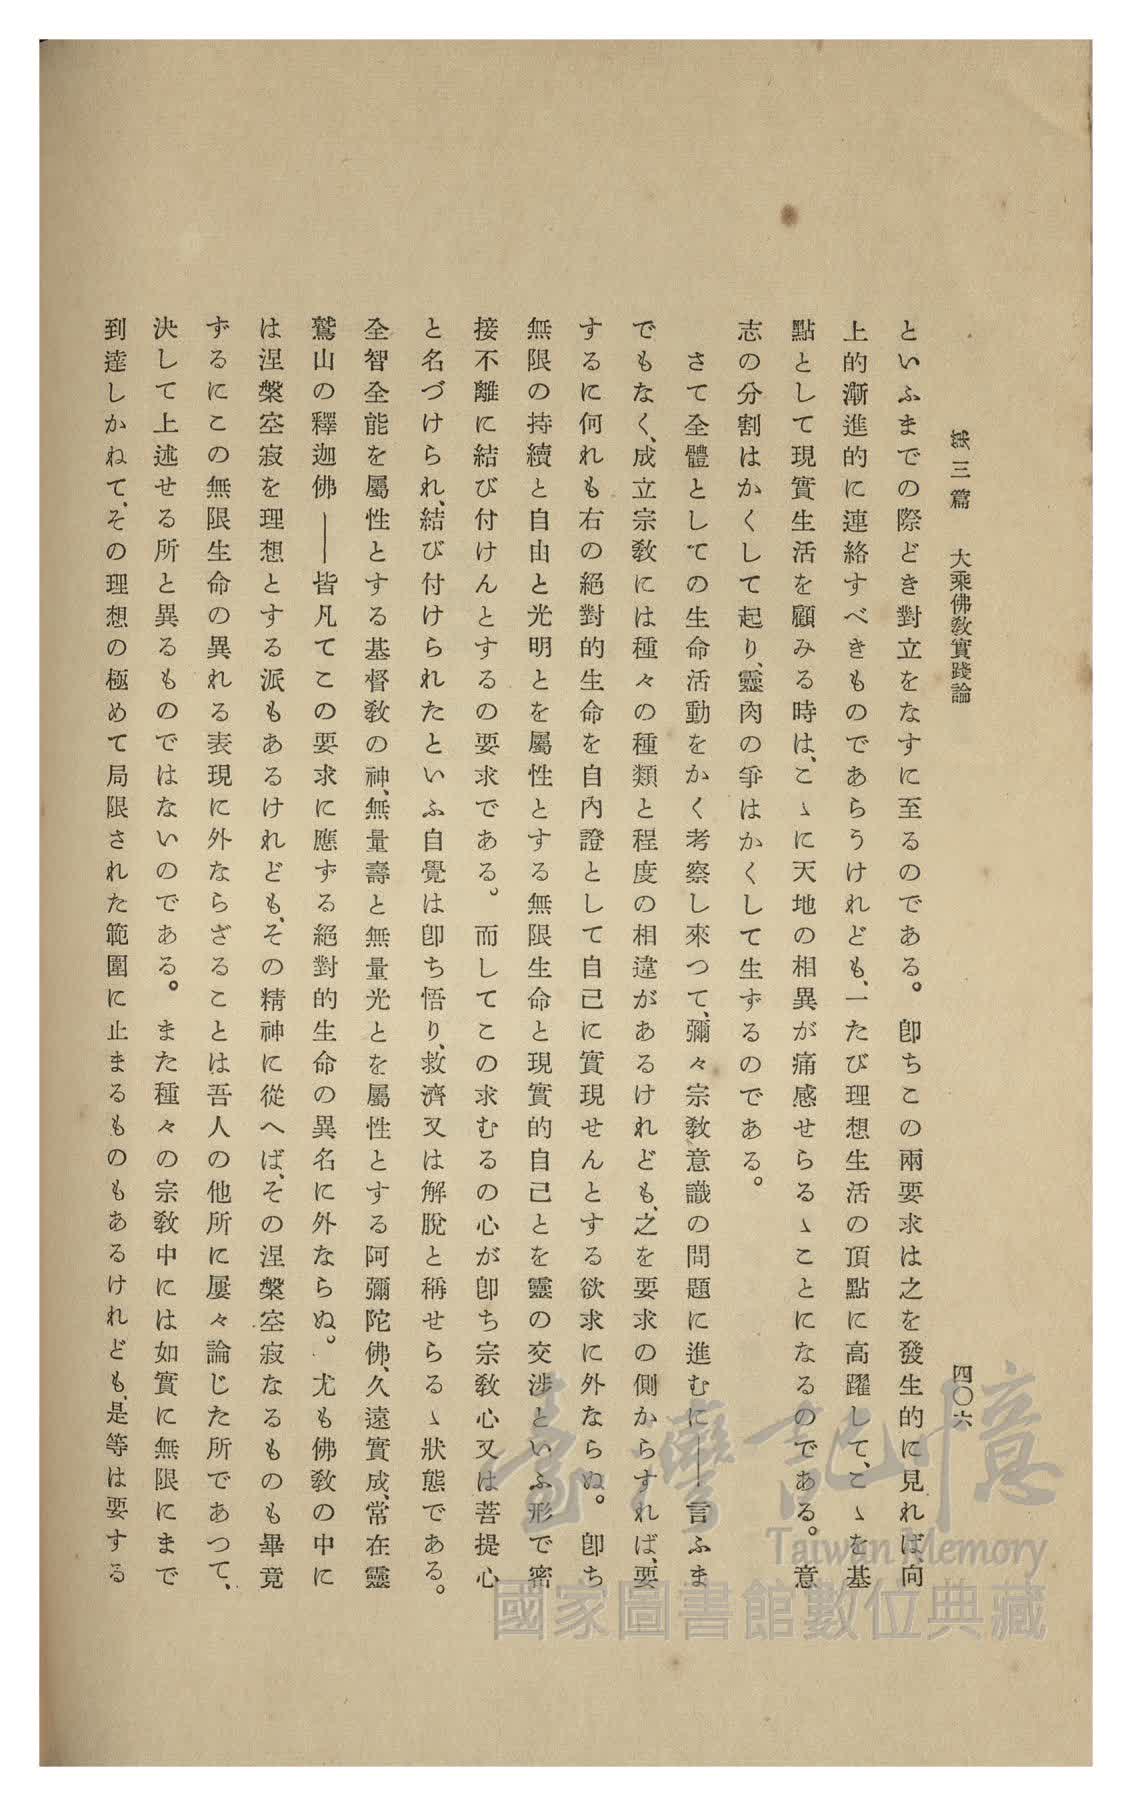 第三篇　大乘佛敎實踐論
四〇六
といふまでの際どき對立をなすに至るのである。卽ちこの兩要求は之を發生的に見れば、向
上的漸進的に連絡すべきものであらうけれども、一たび理想生活の頂點に高躍して、こゝを基
點として現實生活を顧みる時は、こゝに天地の相異が痛感せらるゝことになるのである。意
志の分割はかくして起り、靈肉の爭はかくして生ずるのである。
さて全體としての生命活動をかく考察し來つて、彌々宗敎意識の問題に進むに――言ふま
でもなく、成立宗敎には種々の種類と程度の相違があるけれども、之を要求の側からすれば、要
するに何れも右の絕對的生命を自內證として自己に實現せんとする欲求に外ならぬ。卽ち
無限の持續と自由と光明とを屬性とする無限生命と現實的自己とを靈の交涉といふ形で密
接不離に結び付けんとするの要求である。而してこの求むるの心が卽ち宗敎心又は菩提心
と名づけられ、結び付けられたといふ自覺は卽ち悟り、救濟又は解脫と稱せらるゝ狀態である。
全智全能を屬性とする基督敎の神、無量壽と無量光とを屬性とする阿彌陀佛、久遠實成、常在靈
鷲山の釋迦佛――皆凡てこの要求に應ずる絕對的生命の異名に外ならぬ。尤も佛敎の中に
は涅槃空寂を理想とする派もあるけれども、その精神に從へば、その涅槃空寂なるものも畢竟
ずるにこの無限生命の異れる表現に外ならざることは吾人の他所に屢々論じた所であつて、
決して上述せる所と異るものではないのである。また種々の宗敎中には如實に無限にまで
到達しかねて、その理想の極めて局限された範圍に止まるものもあるけれども、是等は要する
臺灣記憶
Taiwan Memory
國家圖書館數位典藏